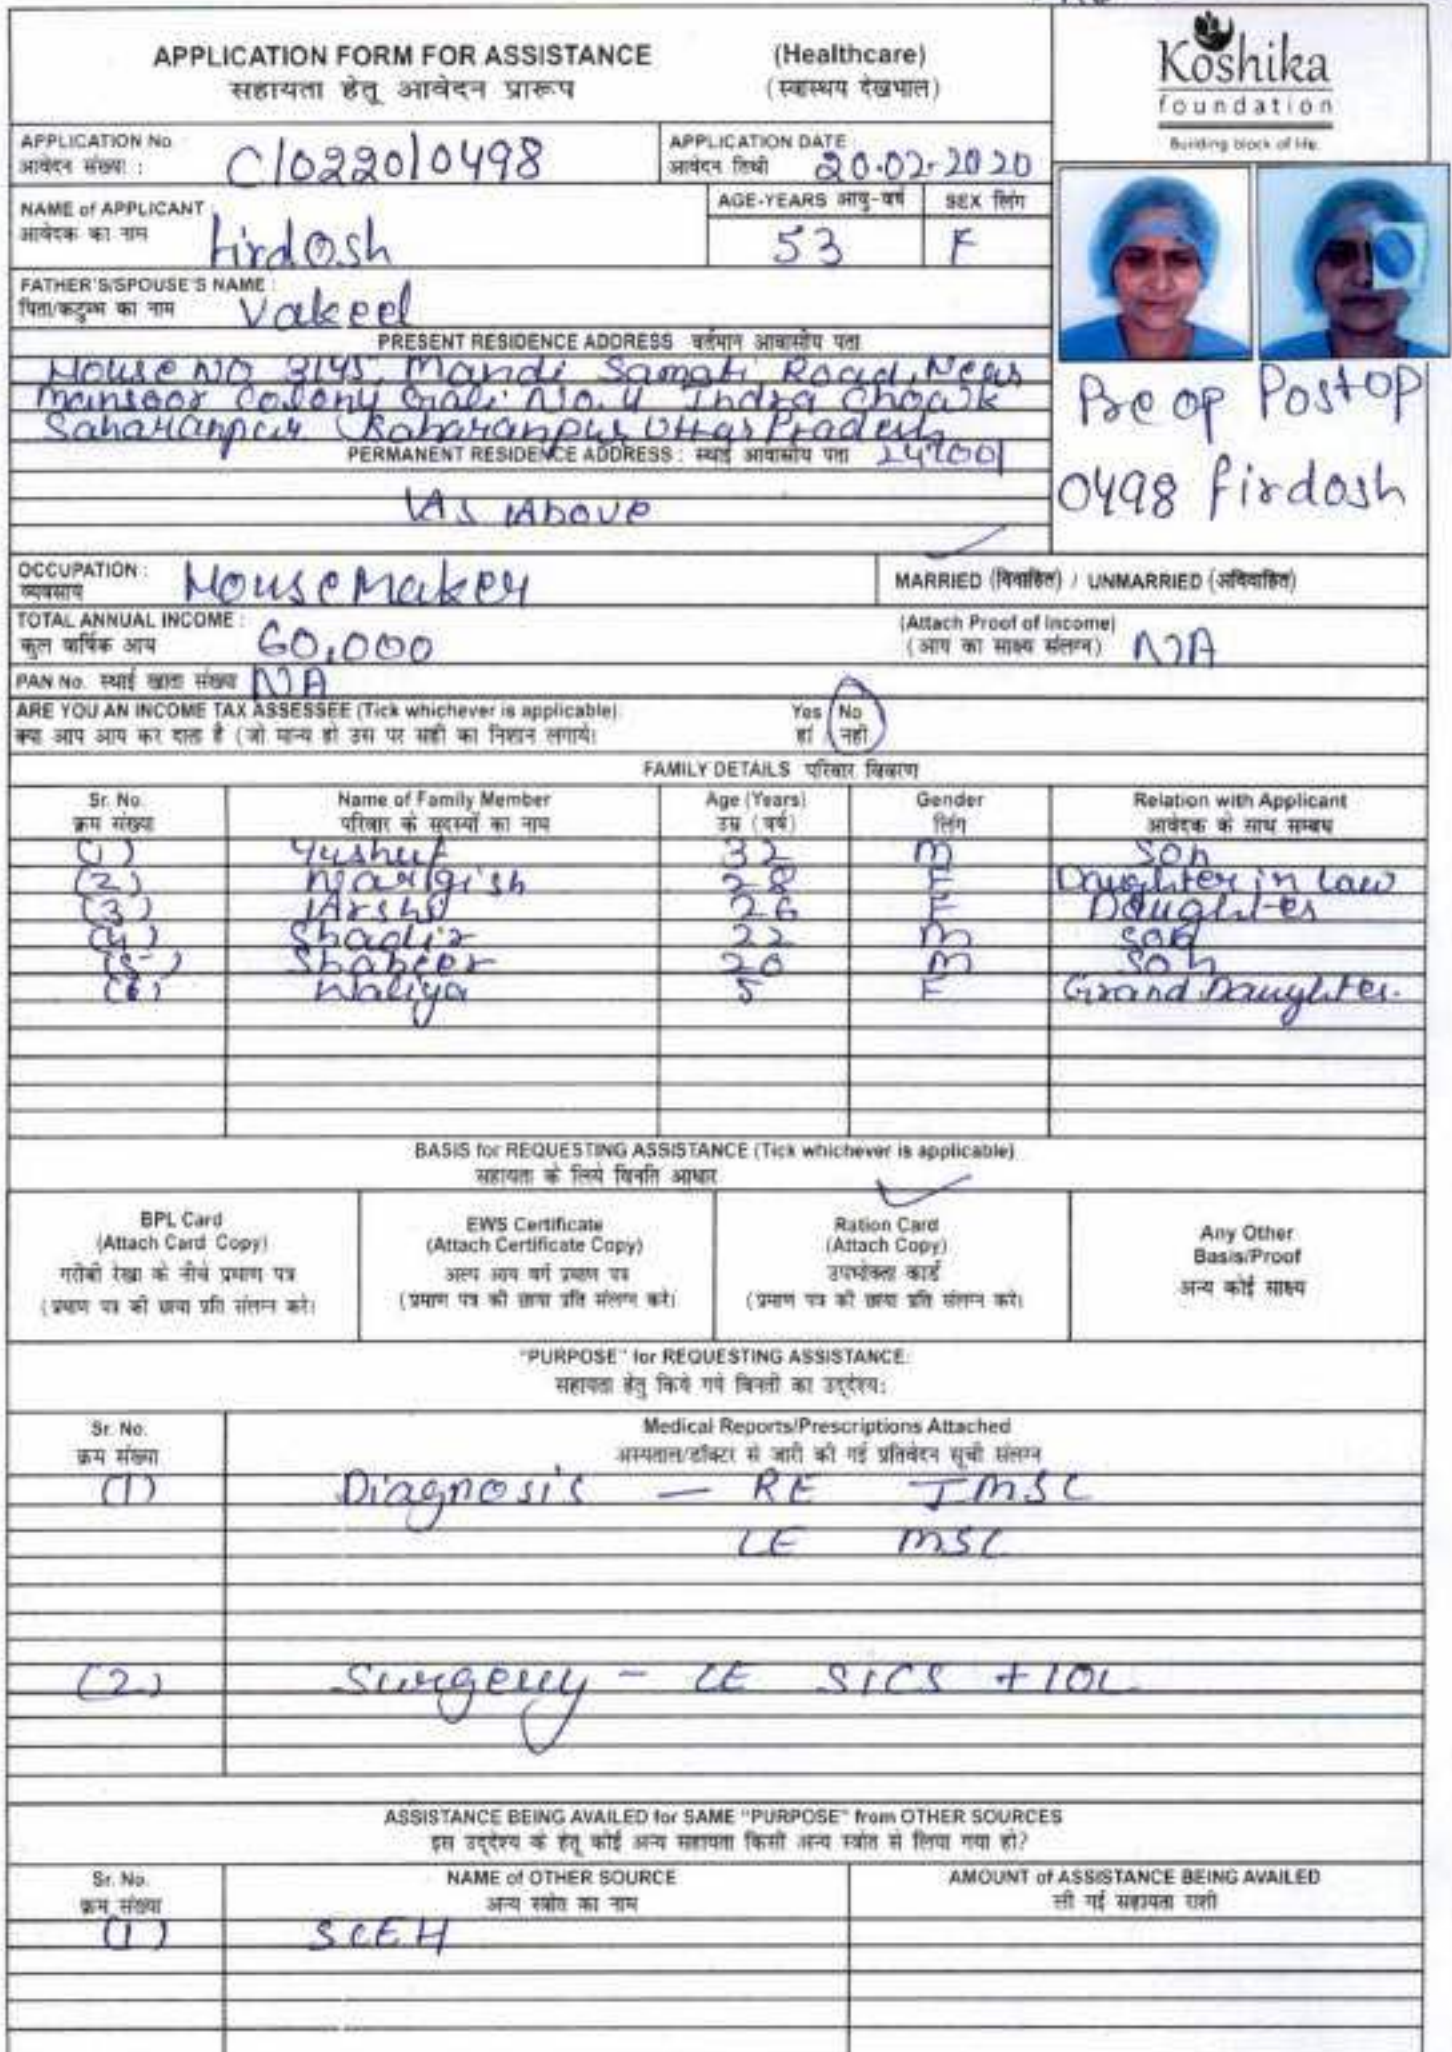 APPLICATION FORM FOR ASSISTANCE (Healthcare)
सहायता हेतू आवेदन प्रारूप (स्वास्थय देखभाल)
Koshika
foundation
Building block of life.
APPLICATION No.
आवेदन संख्या : C/0220/0498
APPLICATION DATE
आवेदन तिथी 20.02.2020
NAME of APPLICANT
आवेदक का नाम Firdosh
AGE-YEARS आयु-वर्ष 53
SEX लिंग F
FATHER'S/SPOUSE'S NAME :
पिता/कटुम्ब का नाम Vakeel
PRESENT RESIDENCE ADDRESS वर्तमान आवासीय पता
House No 3145, Mandi Samati Road, Near
Mansoor Colony Gali No. 4 Indra Choawk
Saharanpur Saharanpur Uttar Pradesh
PERMANENT RESIDENCE ADDRESS : स्थाई आवासीय पता 247001
As Above
Pre op Postop
0498 firdosh
OCCUPATION :
व्यवसाय HouseMaker
MARRIED (विवाहित) / UNMARRIED (अविवाहित)
TOTAL ANNUAL INCOME :
कुल वार्षिक आय 60,000
(Attach Proof of Income)
(आय का साक्ष्य संलग्न) N/A
PAN No. स्थाई खाता संख्या N/A
ARE YOU AN INCOME TAX ASSESSEE (Tick whichever is applicable) Yes No
क्या आप आय कर दाता है (जो मान्य हो उस पर सही का निशान लगाये। हां नही
FAMILY DETAILS परिवार विवरण
Sr. No. Name of Family Member Age (Years) Gender Relation with Applicant
क्रम संख्या परिवार के सदस्यों का नाम उम्र (वर्ष) लिंग आवेदक के साथ सम्बध
(1) Yushuf 32 M Son
(2) Nargish 28 F Daughter in Law
(3) Arshi 26 F Daughter
(4) Shadir 22 M Son
(5) Shabeer 20 M Son
(6) Waliya 5 F Grand Daughter.
BASIS for REQUESTING ASSISTANCE (Tick whichever is applicable)
सहायता के लिये विनति आधार
BPL Card
(Attach Card Copy)
गरीबी रेखा के नीचे प्रमाण पत्र
(प्रमाण पत्र की छाया प्रति संलग्न करे।
EWS Certificate
(Attach Certificate Copy)
अल्प आय वर्ग प्रमाण पत्र
(प्रमाण पत्र की छाया प्रति संलग्न करे।
Ration Card
(Attach Copy)
उपभोक्ता कार्ड
(प्रमाण पत्र की छाया प्रति संलग्न करे।
Any Other
Basis/Proof
अन्य कोई साक्ष्य
"PURPOSE" for REQUESTING ASSISTANCE:
सहायता हेतु किये गये विनती का उद्देश्य:
Sr. No. Medical Reports/Prescriptions Attached
क्रम संख्या अस्पताल/डॉक्टर से जारी की गई प्रतिवेदन सूची संलग्न
(1) Diagnosis — RE IMSC
LE MSC
(2) Surgery - LE SICS + IOL
ASSISTANCE BEING AVAILED for SAME "PURPOSE" from OTHER SOURCES
इस उद्देश्य के हेतू कोई अन्य सहायता किसी अन्य स्त्रोत से लिया गया हो?
Sr. No. NAME of OTHER SOURCE AMOUNT of ASSISTANCE BEING AVAILED
क्रम संख्या अन्य स्त्रोत का नाम ली गई सहायता राशी
(1) SCEH